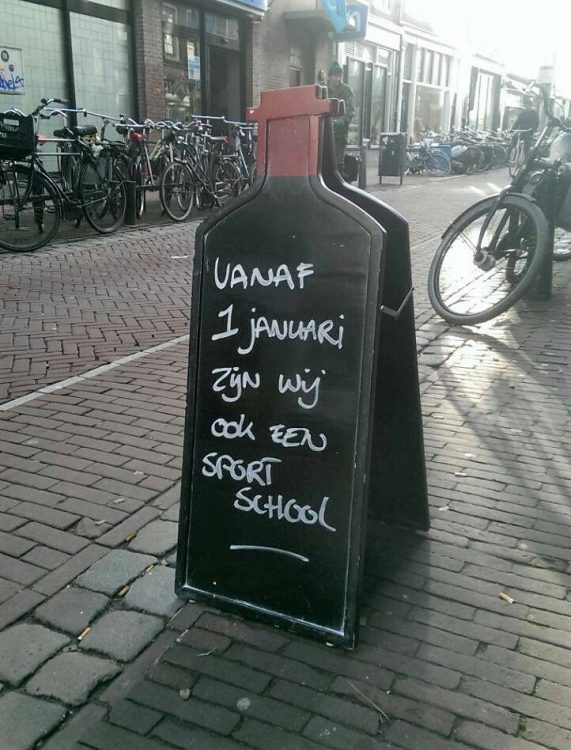 VANAF
1 januari
zijn wij
ook EEN
SPORT
SCHOOL